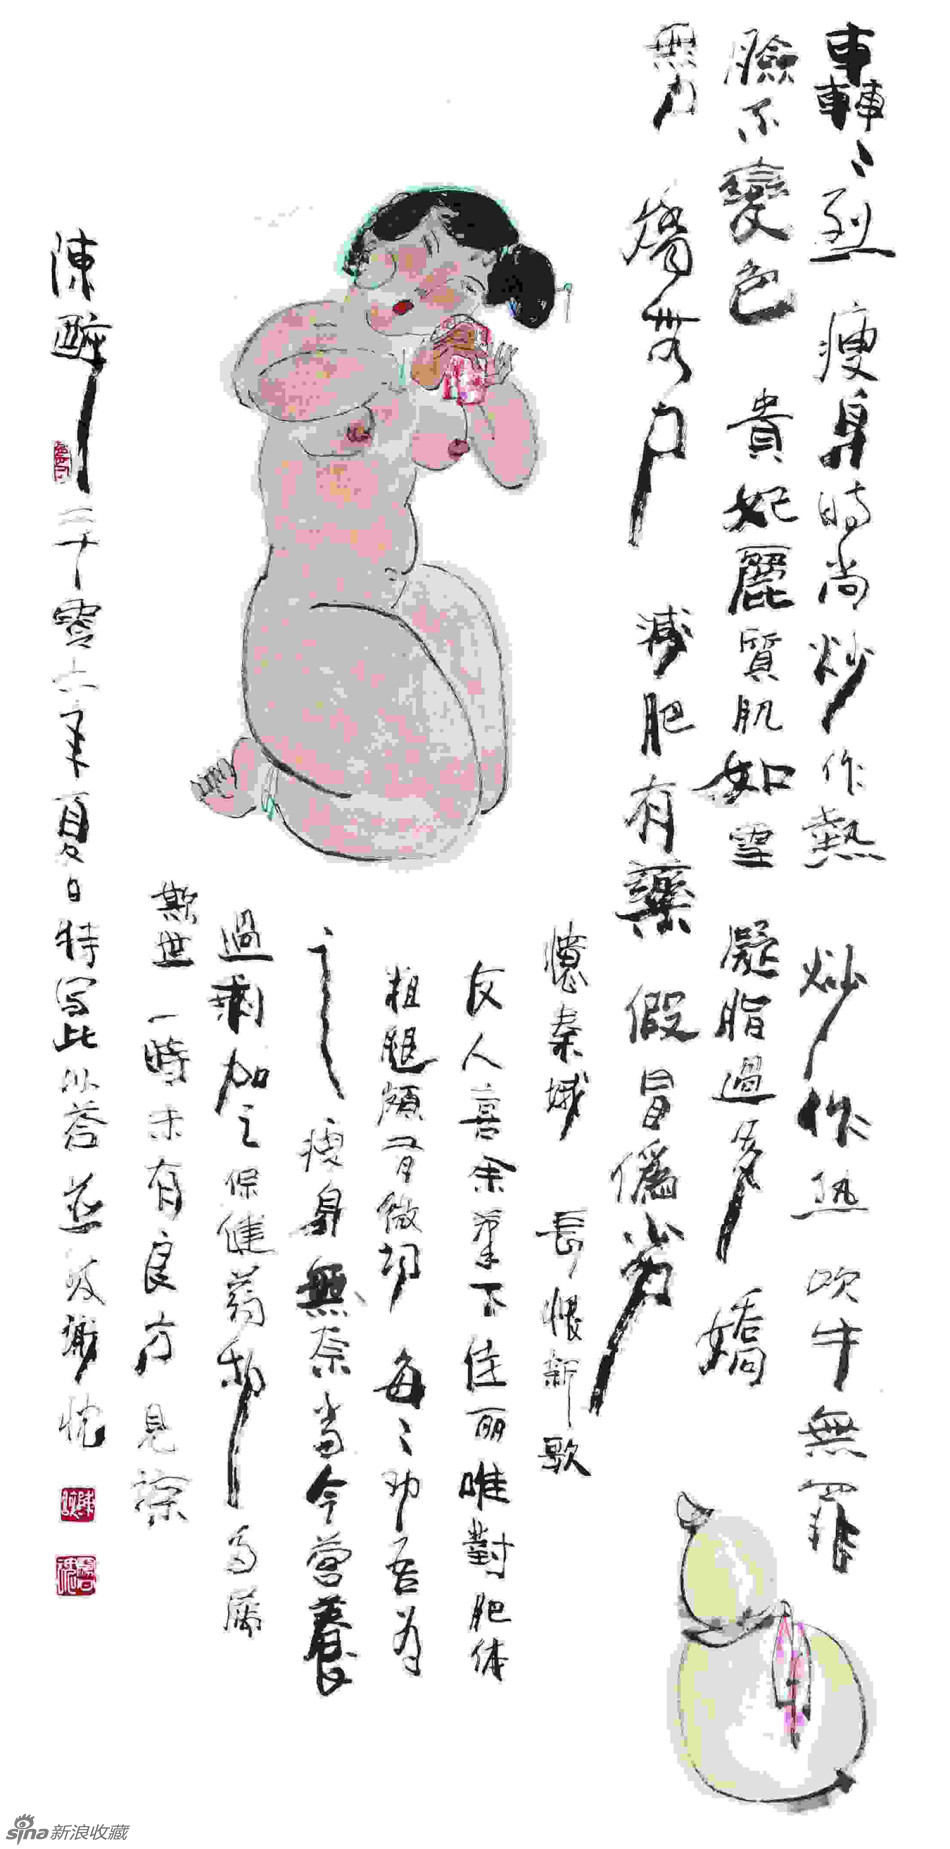 轟〻烈 瘦身時尚炒作熱 炒作熱 吹牛無罪
臉不變色 貴妃麗質肌如雪 凝脂過多 嬌
無力 嬌無力 減肥有藥 假冒偽劣
憶秦娥 長恨新歌
友人喜余筆下佳丽唯對肥体
粗腿頗有微詞 每〻勸吾為
之瘦身無奈當今營養
過剩加之保健藥物
欺世一時未有良方見諒
陳醉 二千零六年夏日特写此以答並致謝忱
sina新浪收藏